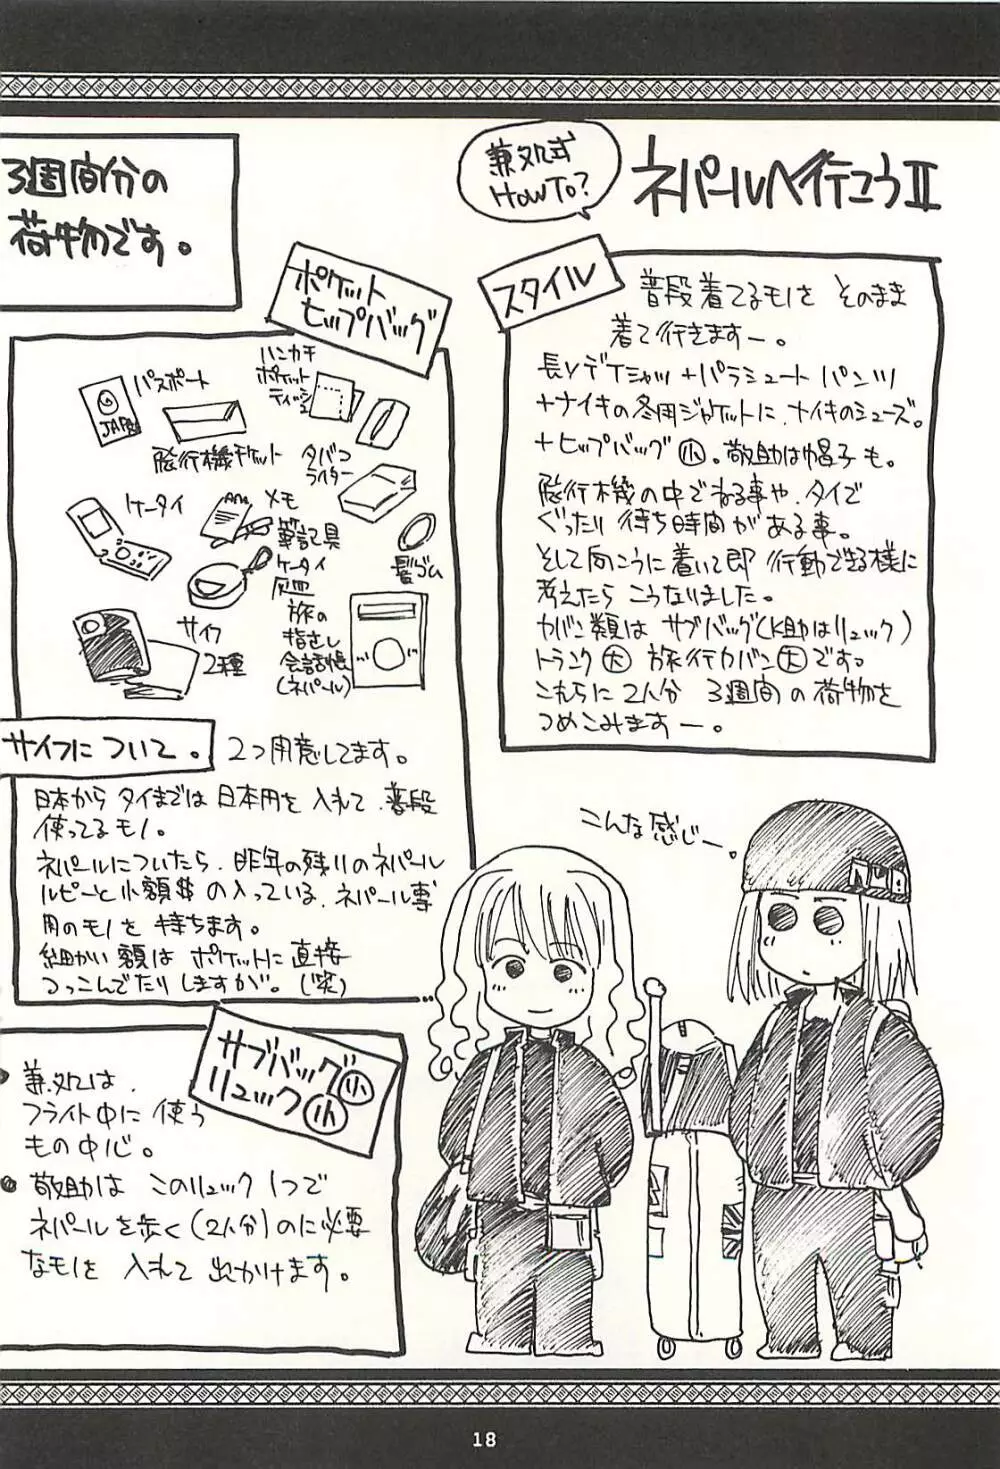 ネパールへ行こうII
兼処式
HOWTO?
スタイル
普段着てるモノを そのまま
着て行きますー。
長Vデ Tシャツ+パラシュート パンツ
+ナイキの冬用ジャケットに、ナイキのシューズ。
+ヒップバッグ小。敬助は帽子も。
飛行機の中でねる事や、タイで
ぐったり 待ち時間がある事。
そして向こうに着いて即 行動できる様に
考えたら こうなりました。
カバン類は サブバッグ(K助はリュック)
トランク大 旅行カバン大です。
これらに 2人分 3週間の荷物を
つめこみますー。
3週間分の
荷物です。
ポケット
ヒップバッグ
パスポート
JAPAN
飛行機チケット
ハンカチ
ポケット
ティッシュ
タバコ
ライター
ケータイ
メモ
筆記具
ケータイ
灰皿
髪ゴム
サイフ
2種
旅の
指さし
会話帳
(ネパール)
サイフについて。
2つ用意してます。
日本から タイまでは 日本円を 入れて、普段
使ってるモノ。
ネパールについたら、昨年の残りのネパール
ルピーと小額$の入っている、ネパール専
用のモノを 持ちます。
細かい額は ポケットに直接
つっこんでたりしますが。(笑)
サブバッグ小
リュック小
兼処は、
フライト中に 使う
もの中心。
敬助は このリュック1つで
ネパールを歩く(2人分)のに必要
なモノを 入れて 出かけます。
こんな感じー。
18